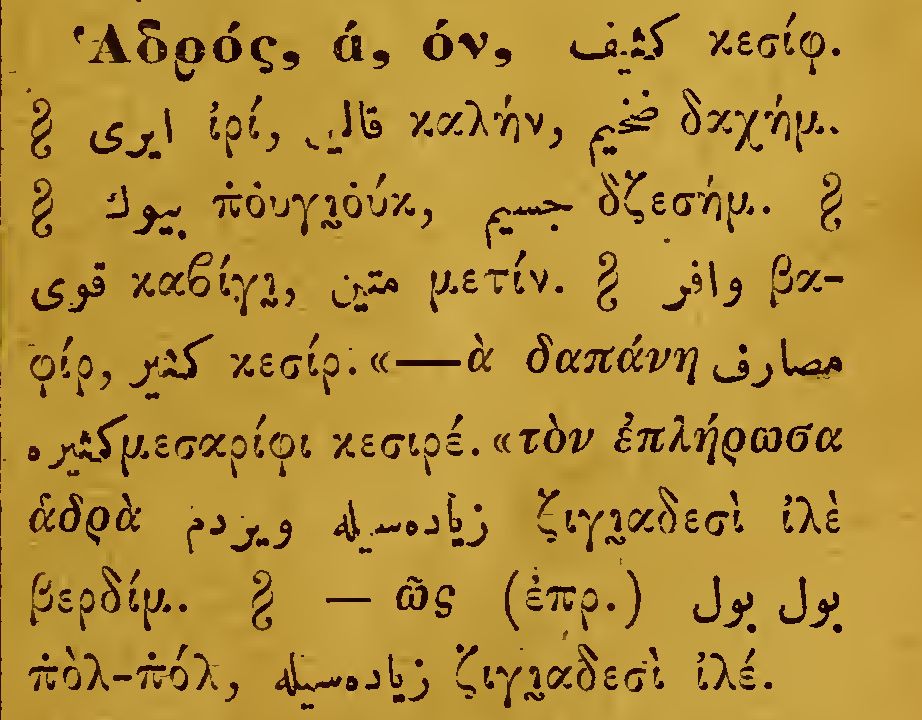 Ἁδρός, ά, όν, كثیف κεσίφ.
§ ایری ἰρί, قالین καλήν, ضخیم δαχήμ.
§ بیوك π̇ὀυγιὀύκ, جسیم δζεσήμ. §
قوی καβίγι, متین μετίν. § وافر βα-
φίρ, كثیر κεσίρ. «—ὰ δαπάνη مصارف
كثیره μεσαρίφι κεσιρέ. «τὸν ἐπλήρωσα
ἁδρὰ زیاده‌سیله ویردم ζιγιαδεσὶ ἰλὲ
βερδίμ. § — ῶς (ἐπρ.) بول بول
π̇ὸλ-π̇όλ, زیاده‌سیله ζιγιαδεσὶ ἰλέ.